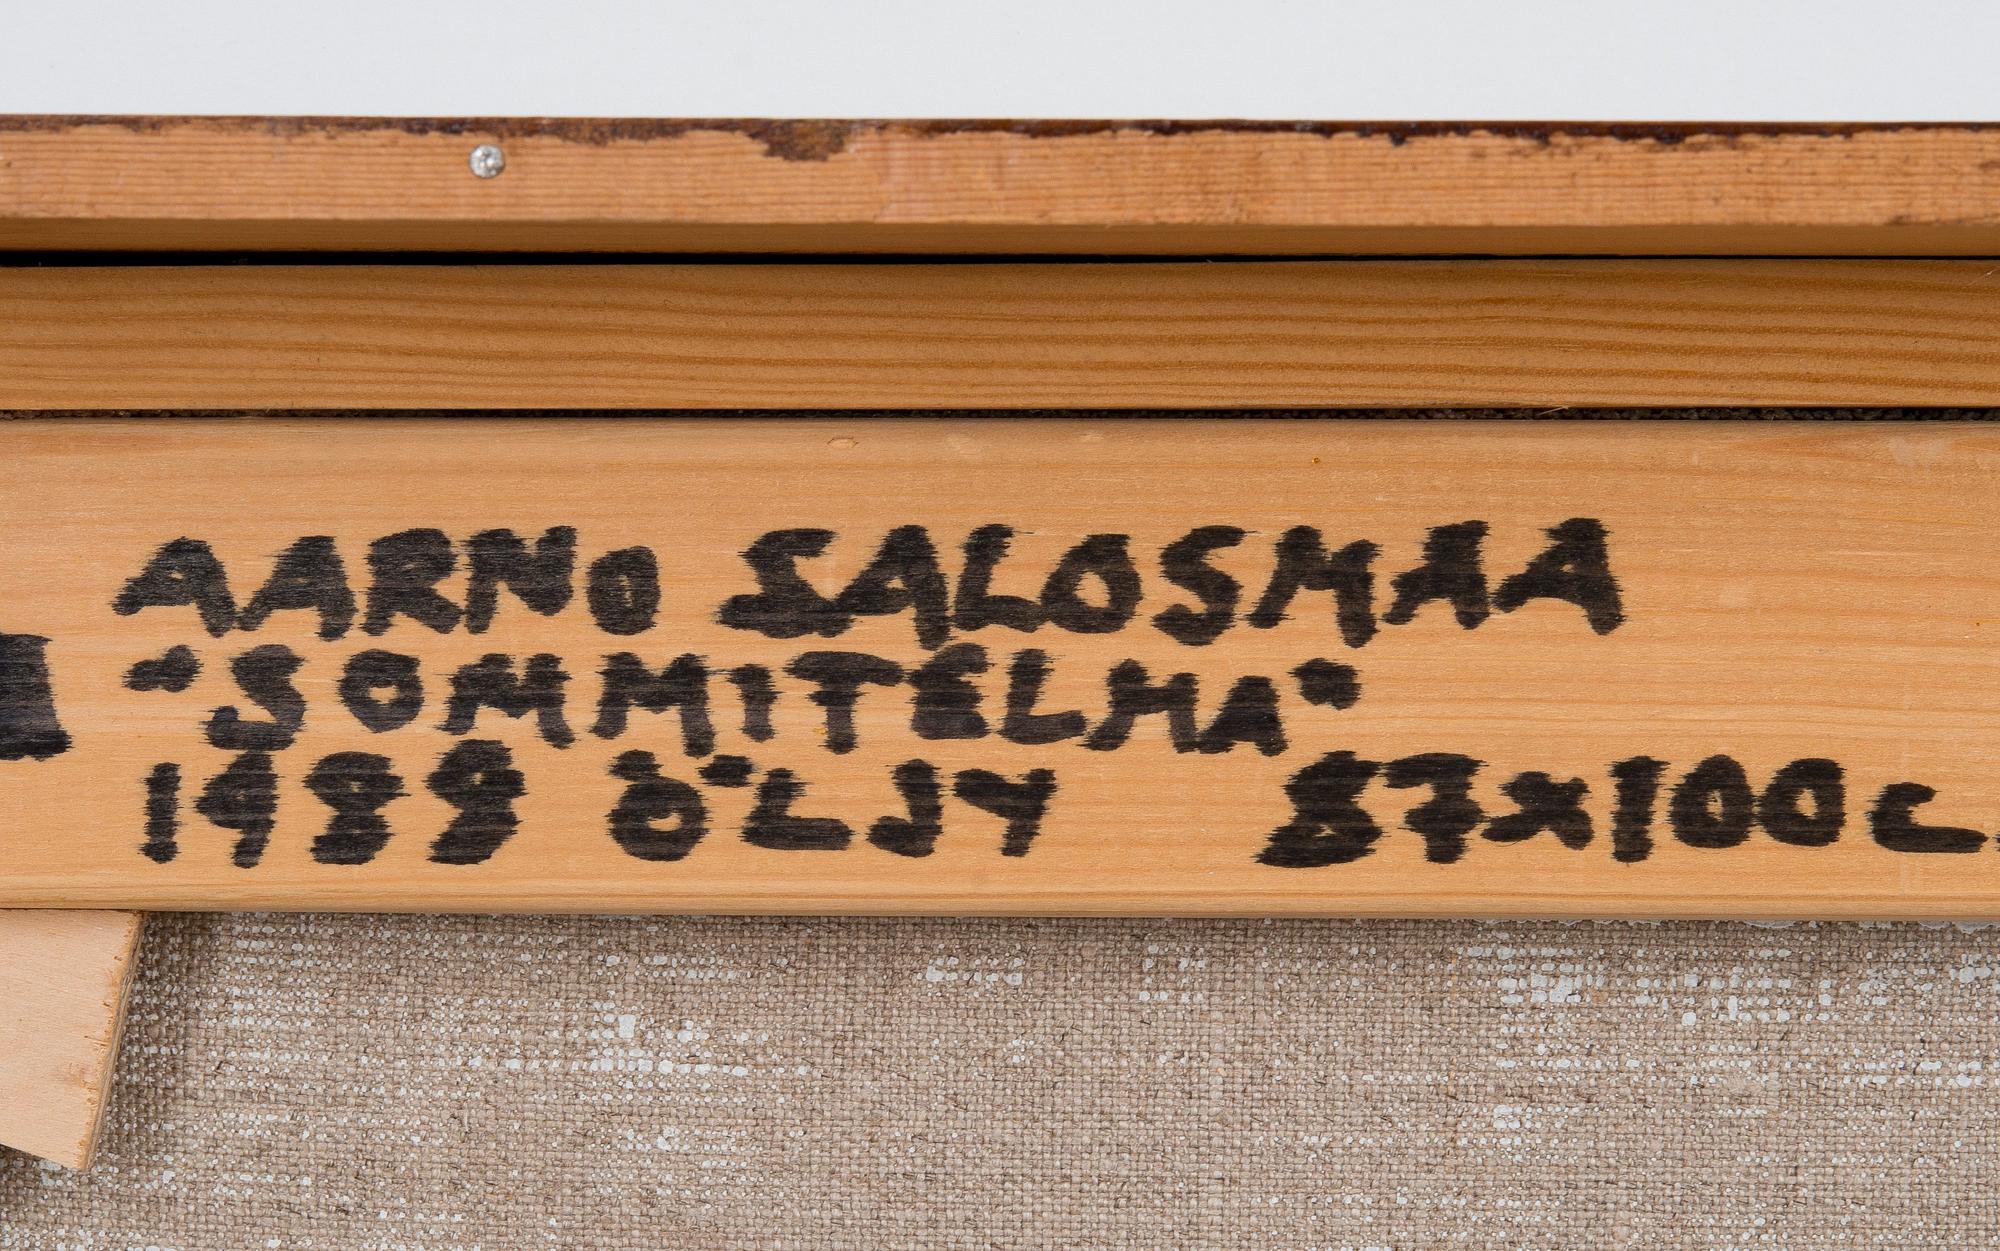 AARNO SALOSMAA
"SOMMITELMA"
1988 ÖLJY 87x100c